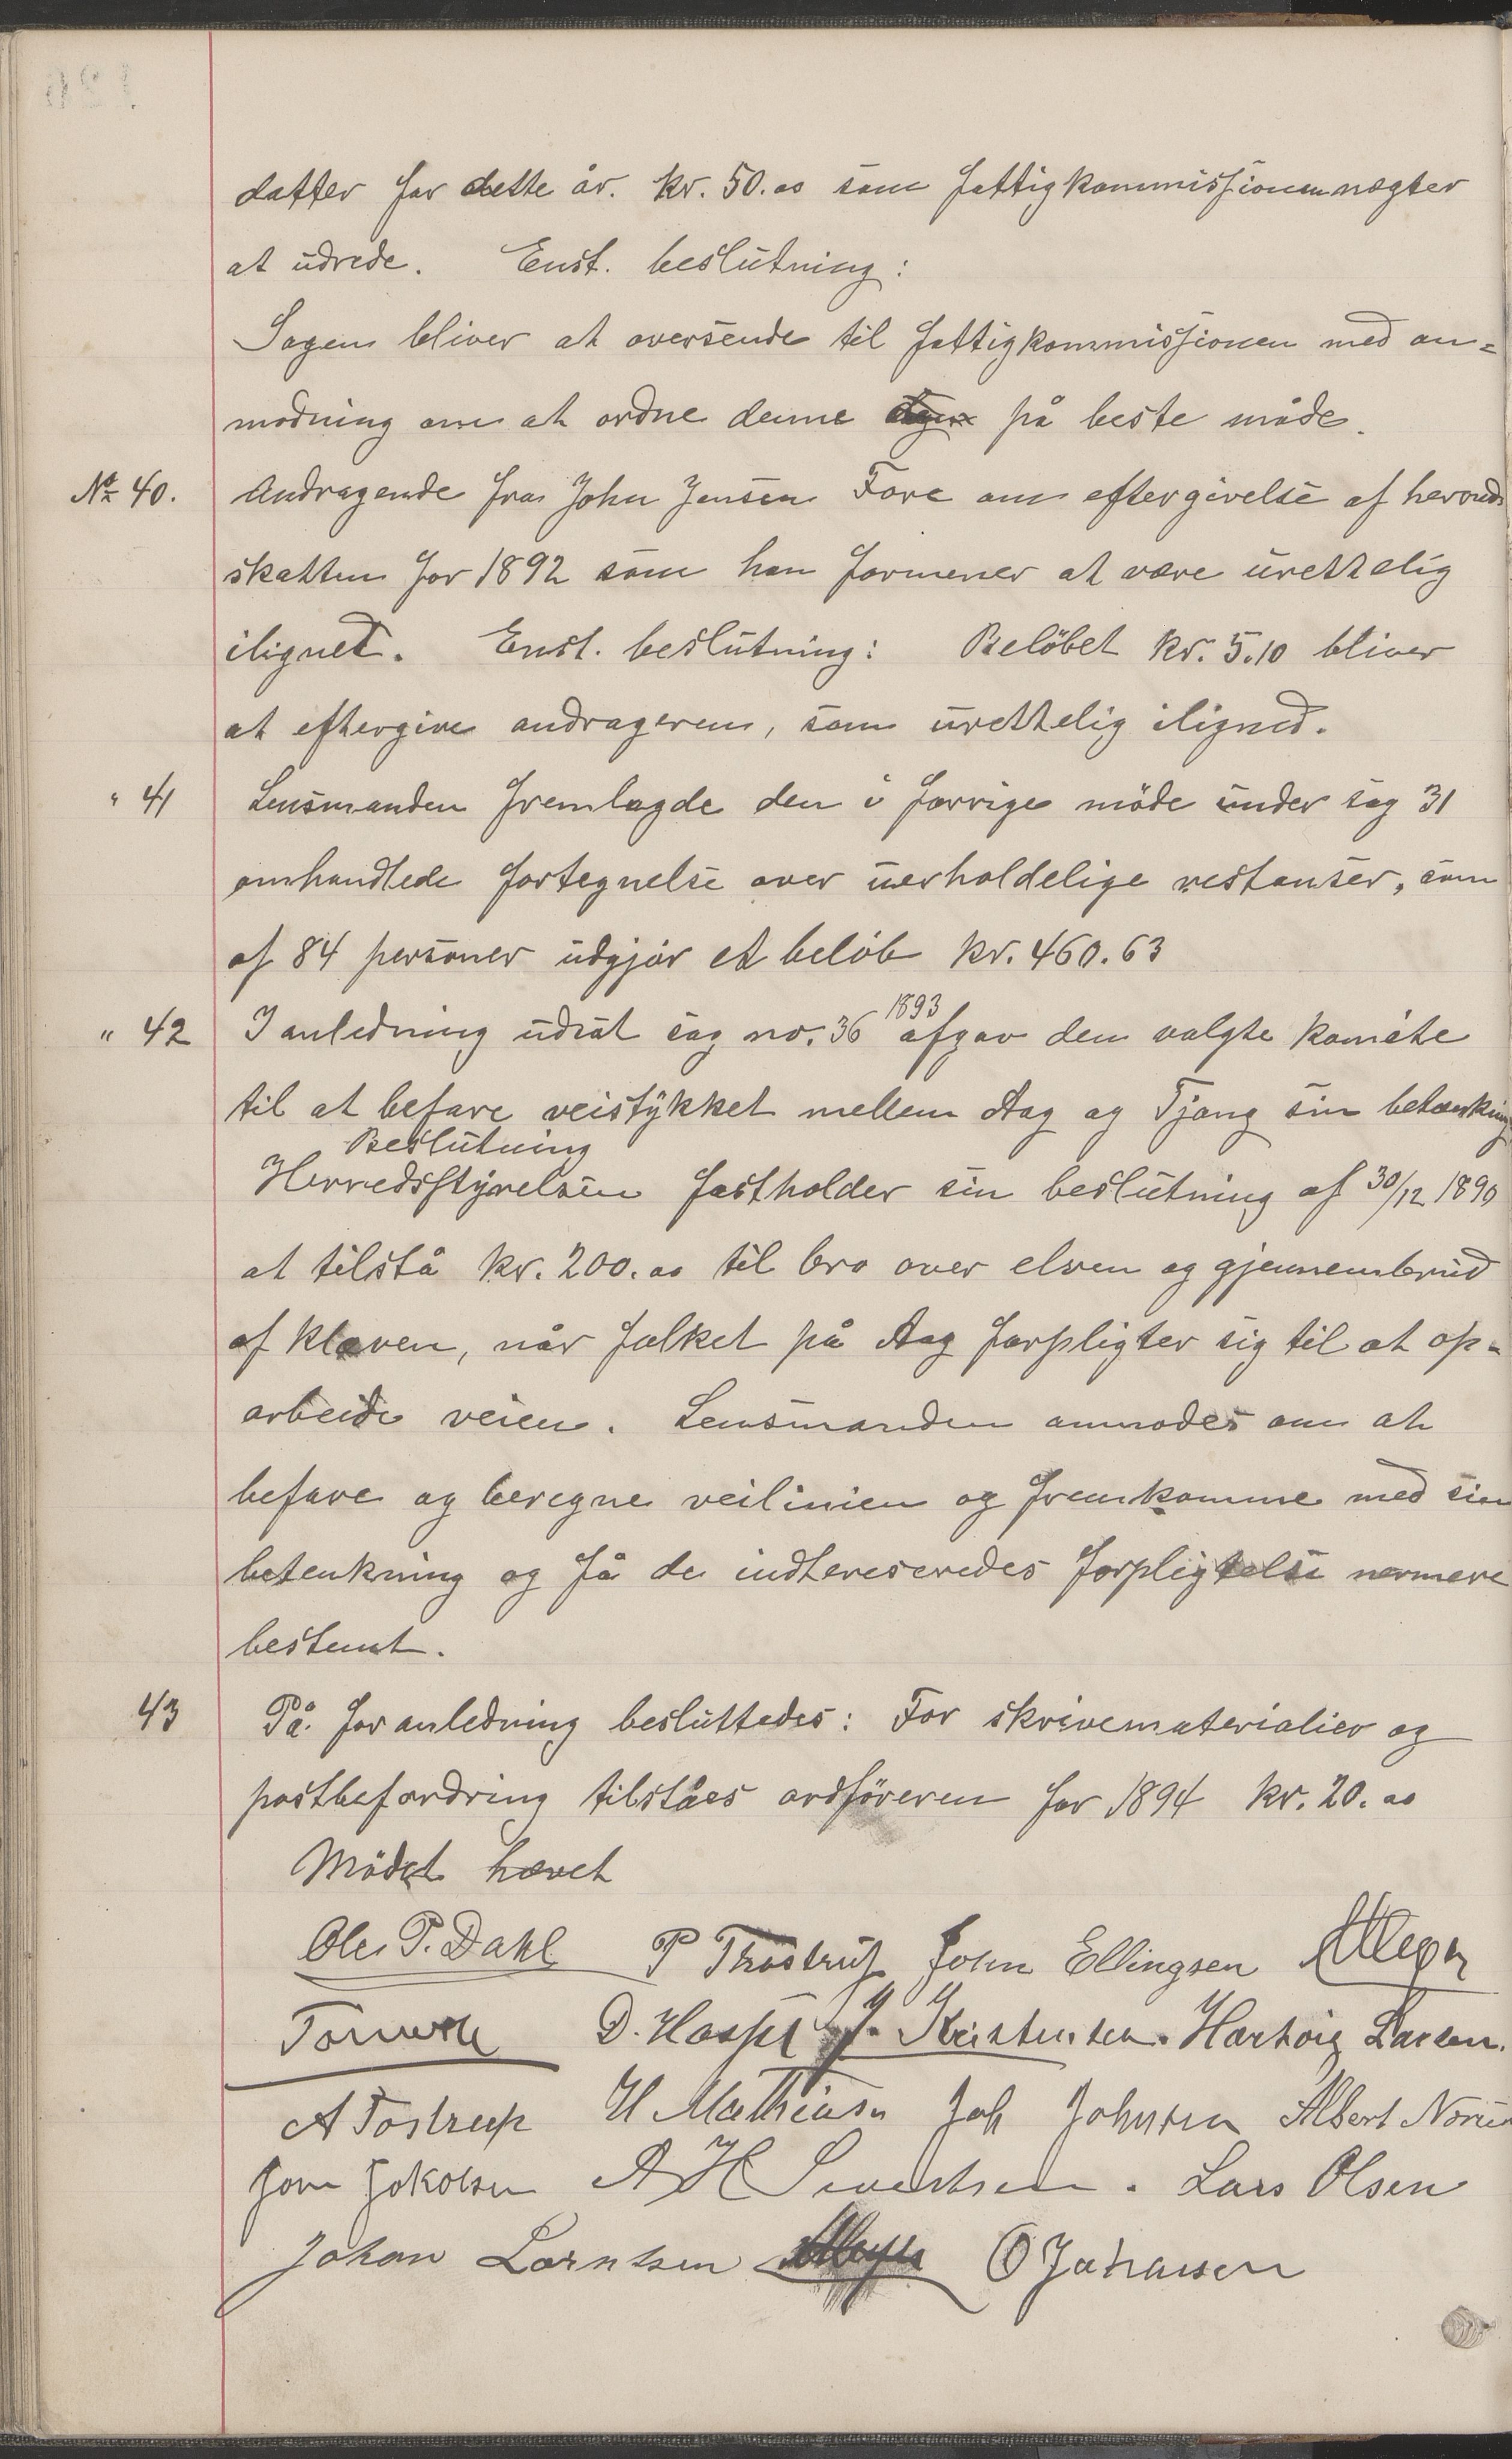 datter for dette år. kr. 50.00 som fattigkommissionen nægter
at udrede. Enst. beslutning:
Sagen bliver at oversende til fattigkommissionen med an=
modning om at ordne denne på beste måde.
No 40. Andragende fra John Jensen Fore om eftergivelse af herreds
skatten for 1892 som han formener at være urettelig
ilignet. Enst. beslutning: Belöbet kr. 5.10 bliver
at eftergive andrageren, som urettelig ilignet.
" 41 Lensmanden fremlagde den i forrige möde under sag 31
omhandlede fortegnelse over uerholdelige restanser, som
af 84 personer udgjör et belöb kr. 460.63
" 42 I anledning udsat sag no. 36 1893 afgav den valgte komite
til at befare veistykket mellem Aag og Tjong sin betænkning
Beslutning
Herredsstyrelsen fastholder sin beslutning af 30/12 1890
at tilstå kr. 200.00 til bro over elven og gjennembrud
af kleven, når folket på Aag forpligter sig til at op-
arbeide veien. Lensmanden anmodes om at
befare og beregne veilinien og fremkomme med sin
betenkning og få de indtereseredes forpligtelse nermere
bestemt.
43 På foranledning besluttedes: For skrivematerialier og
postbefordring tilståes ordföreren for 1894 kr. 20.00
Mödet hævet
Ole P. Dahl P Thostrup John Ellingsen
D. Haspe J. Kristensen. Hartvig Larsen.
A Tostrup H Mathiasen Joh Johnsen Albert
Jakobsen A H Sivertsen. Lars Olsen
Johan Lorntsen O Johansen